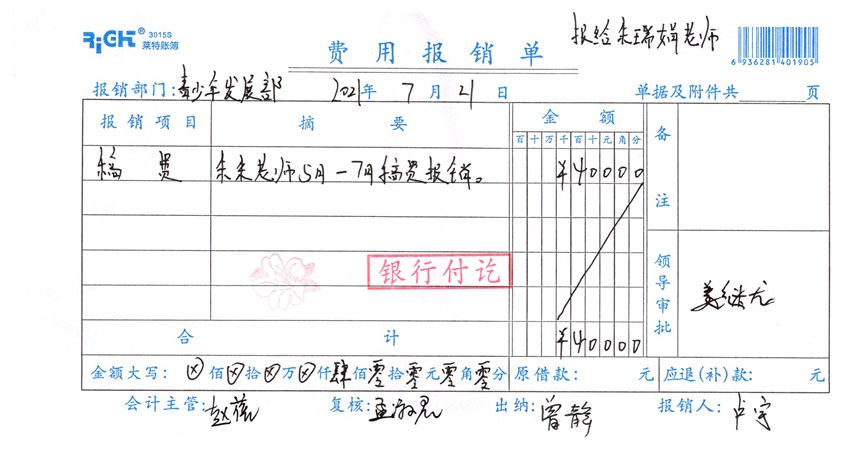 RiGHT® 3015S 莱特账簿
报给朱瑞娟老师
费用报销单
6 936281 401905
报销部门:青少年发展部 2021年 7月 21日 单据及附件共 页
报销项目 摘要 金额 备注
百 十 万 千 百 十 元 角 分
稿费 朱朱老师5月-7月稿费报销。 ¥40000
银行付讫
领导审批
合计 ¥40000
金额大写: ⊗佰⊗拾⊗万⊗仟肆佰零拾零元零角零分 原借款: 元 应退(补)款: 元
会计主管: 复核:孟淑君 出纳:曾静 报销人:卢宇